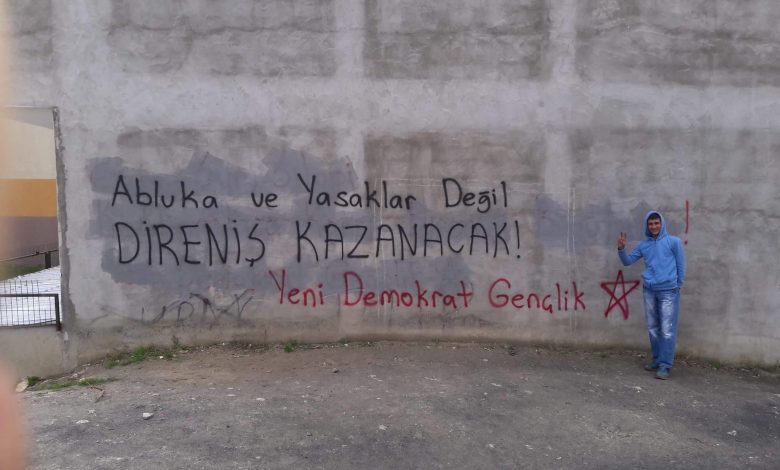 Abluka ve Yasaklar Değil
DİRENİŞ KAZANACAK!
Yeni Demokrat Gençlik
!